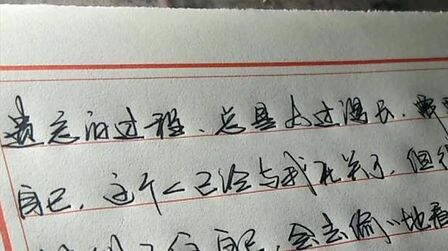 遗忘的过程、总是太过漫长.
自己，这个人已经与我无关了，但
自己，会去偷偷地看